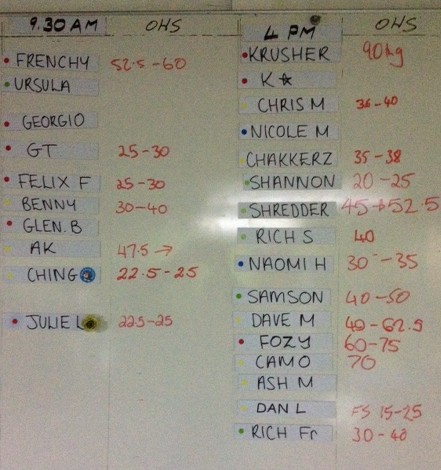 9.30 AM OHS
FRENCHY 52.5-60
URSULA
GEORGIO
GT 25-30
FELIX F 25-30
BENNY 30-40
GLEN.B
AK 47.5 →
CHING 22.5-25
JULIE L 22.5-25
4 PM OHS
KRUSHER 90kg
K☆
CHRIS M 36-40
NICOLE M
CHAKKERZ 35-38
SHANNON 20-25
SHREDDER 45→52.5
RICH S 40
NAOMI H 30-35
SAMSON 40-50
DAVE M 40-62.5
FOZY 60-75
CAMO 70
ASH M
DAN L FS 15-25
RICH Fr 30-40